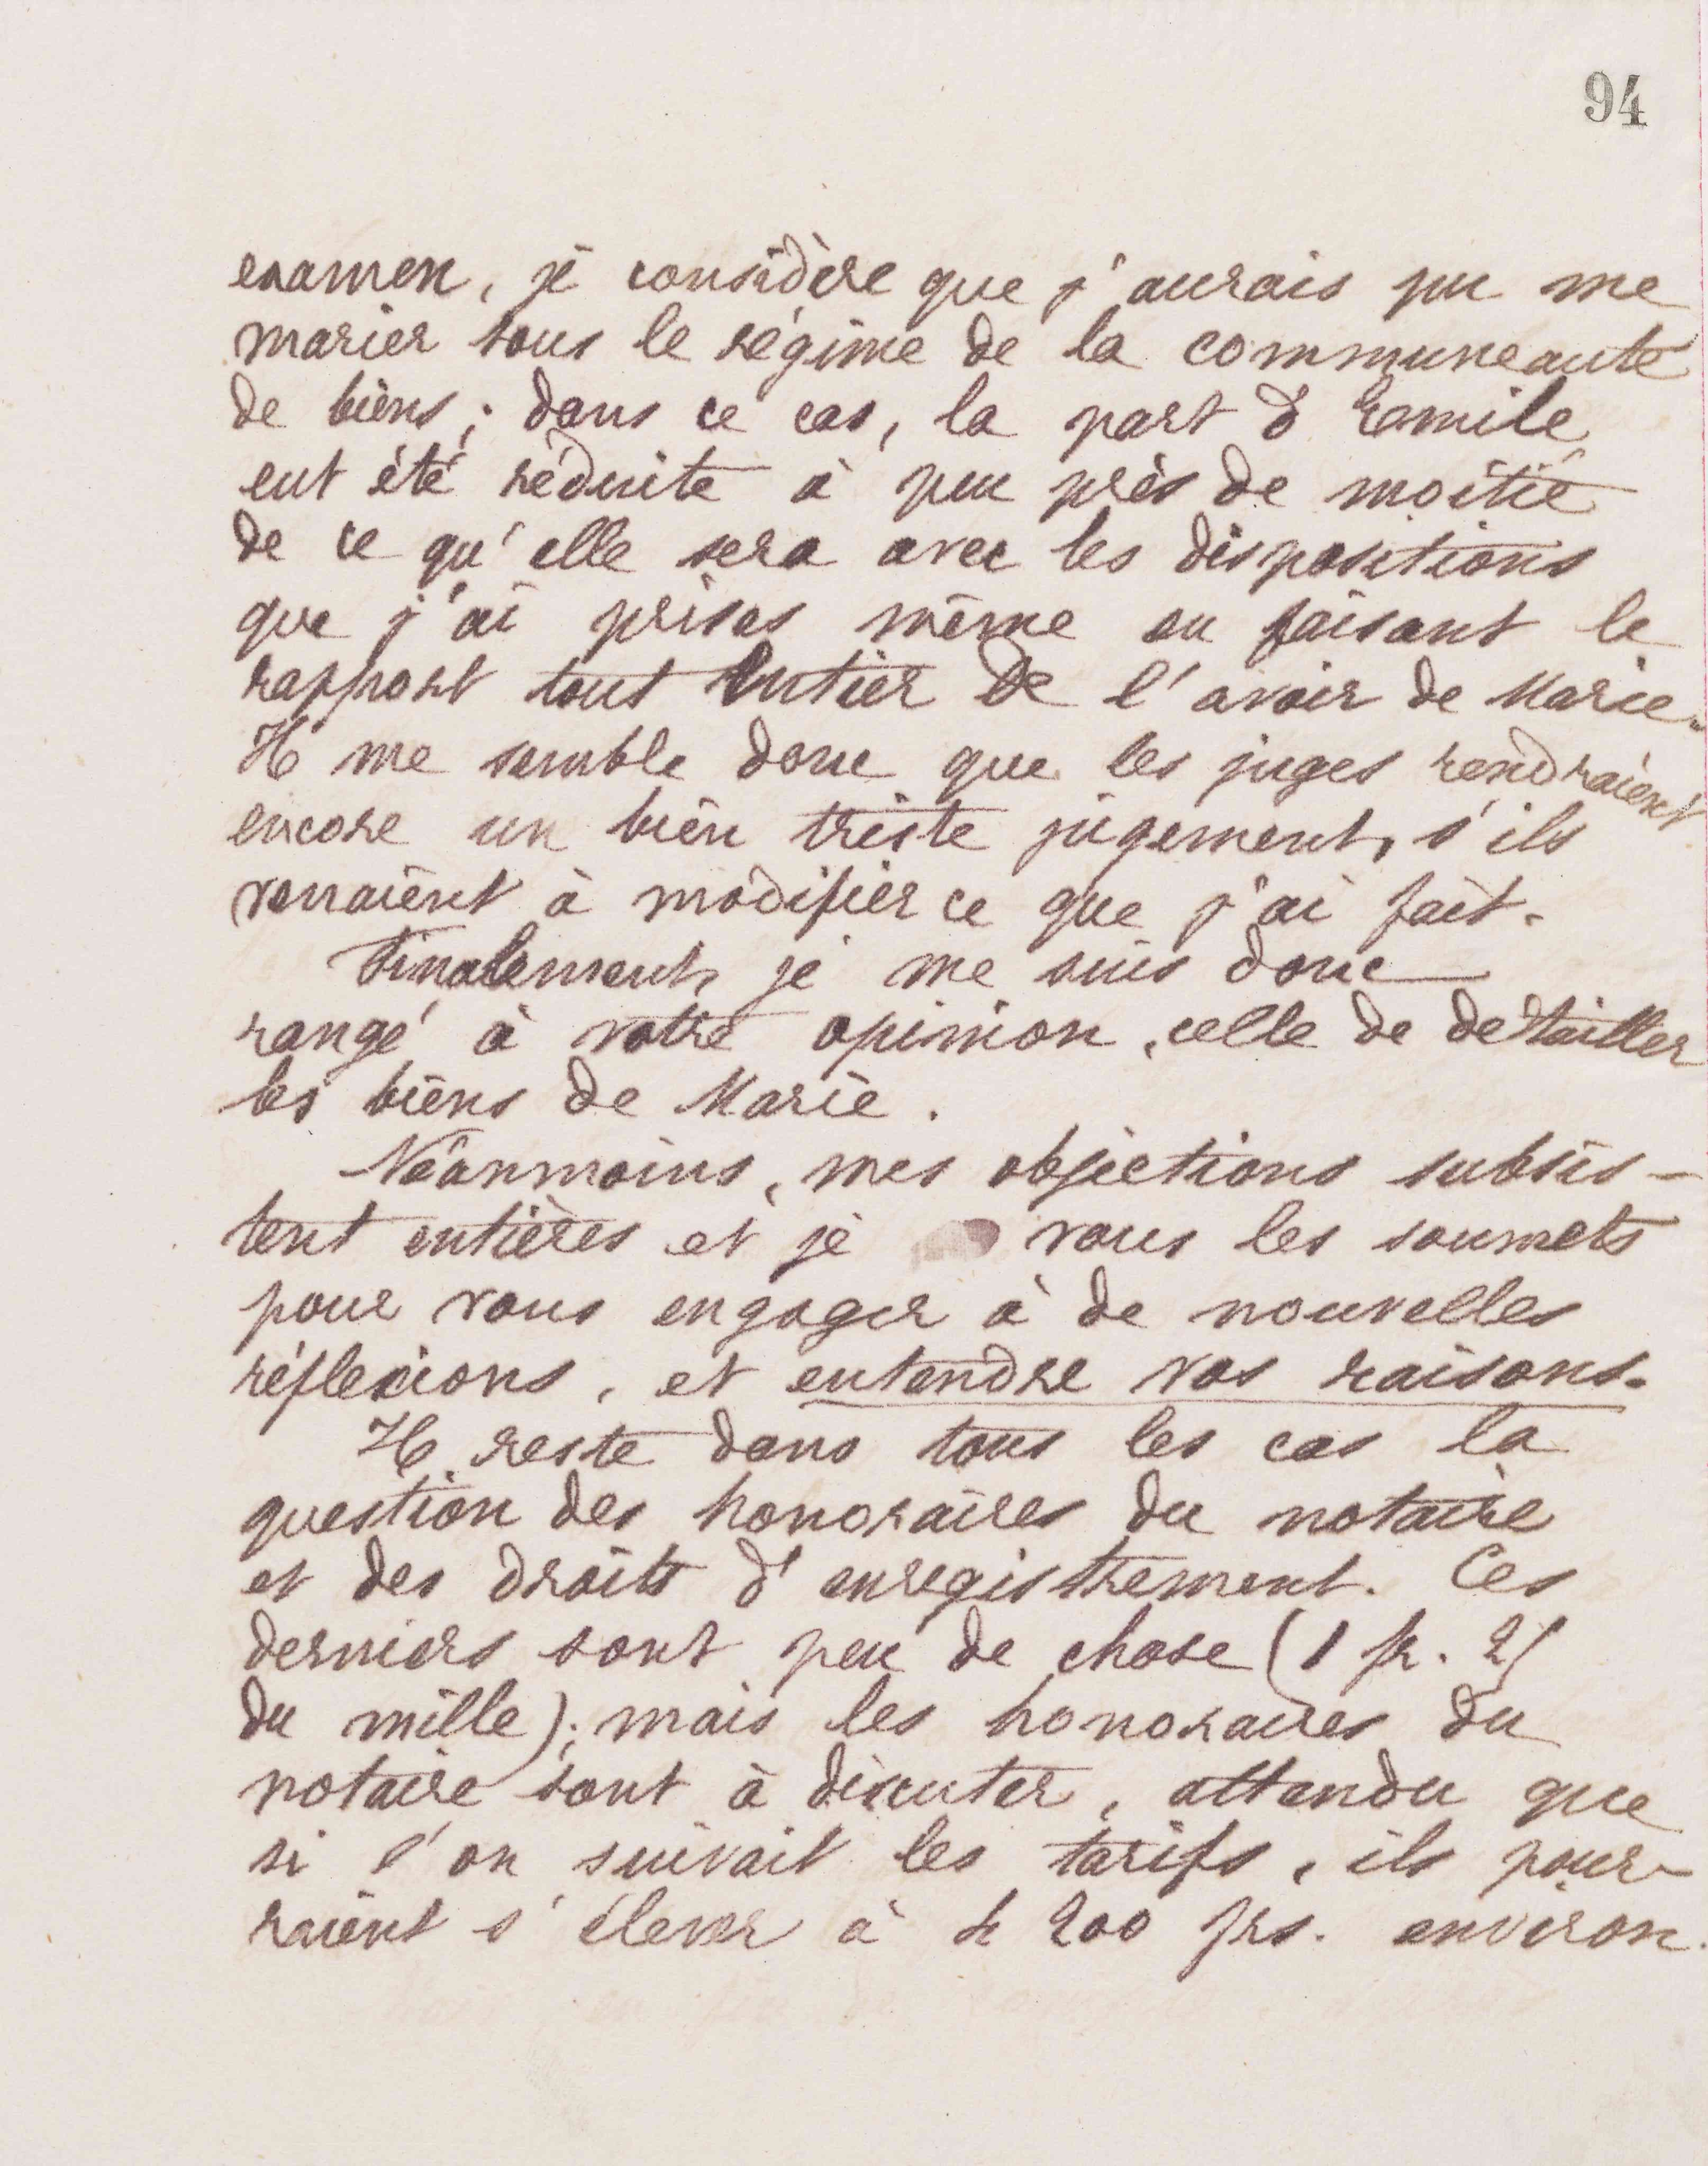 94
examen, je considère que j'aurais pu me
marier sous le régime de la communeauté
de biens ; dans ce cas, la part d'Emile
eut été réduite à peu près de moitié
de ce qu'elle sera avec les dispositions
que j'ai prises même en faisant le
rapport tout entier de l'avoir de Marie.
Il me semble donc que les juges rendraient
encore un bien triste jugement, s'ils
venaient à modifier ce que j'ai fait.
Finalement, je me suis donc
rangé à votre opinion, celle de detailler
les biens de Marie.
Néanmoins, mes objections subsis-
tent entières et je vous les soumets
pour vous engager à de nouvelles
réflexions, et entendre vos raisons.
Il reste dans tous les cas la
question des honoraires du notaire
et des droits d'enregistrement. Ces
derniers sont peu de chose (1 fr. 25
du mille) ; mais les honoraires du
notaire sont à discuter, attendu que
si l'on suivait les tarifs, ils pour-
raient s'élever à 4 200 frs. environ.